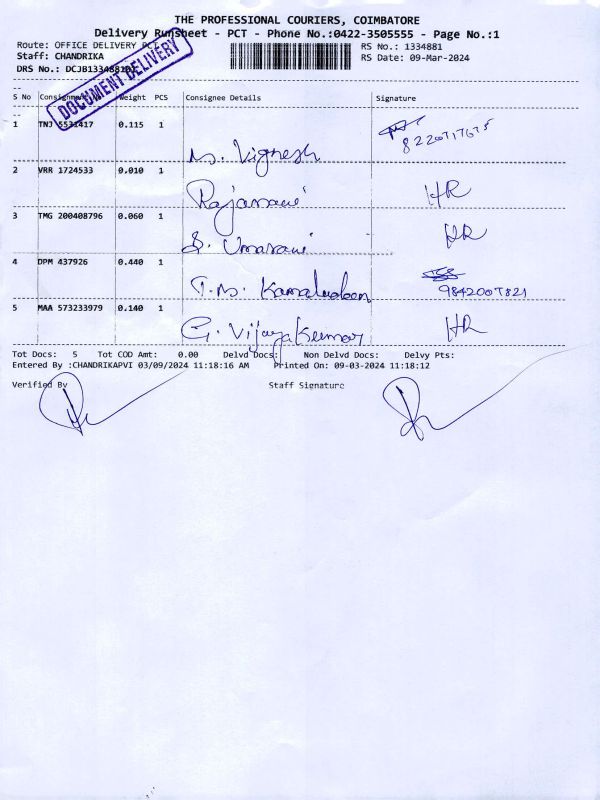 THE PROFESSIONAL COURIERS, COIMBATORE
Delivery Runsheet - PCT - Phone No.:0422-3505555 - Page No.:1
Route: OFFICE DELIVERY PCT
RS No.: 1334881
Staff: CHANDRIKA
RS Date: 09-Mar-2024
DRS No.:
DOCUMENT DELIVERY
S No Weight PCS Consignee Details Signature
1 TNJ 5531417 0.115 1
M. Vignesh 8220717675
2 VRR 1724533 0.010 1
Rajamani HR
3 TMG 200408796 0.060 1
S. Umarani HR
4 DPM 437926 0.440 1
T.M. Kamaludeen 9842007821
5 MAA 573233979 0.140 1
G. Vijaya Kumar HR
Tot Docs: 5 Tot COD Amt: 0.00 Delvd Docs: Non Delvd Docs: Delvy Pts:
Entered By :CHANDRIKAPVI 03/09/2024 11:18:16 AM Printed On: 09-03-2024 11:18:12
Verified By Staff Signature